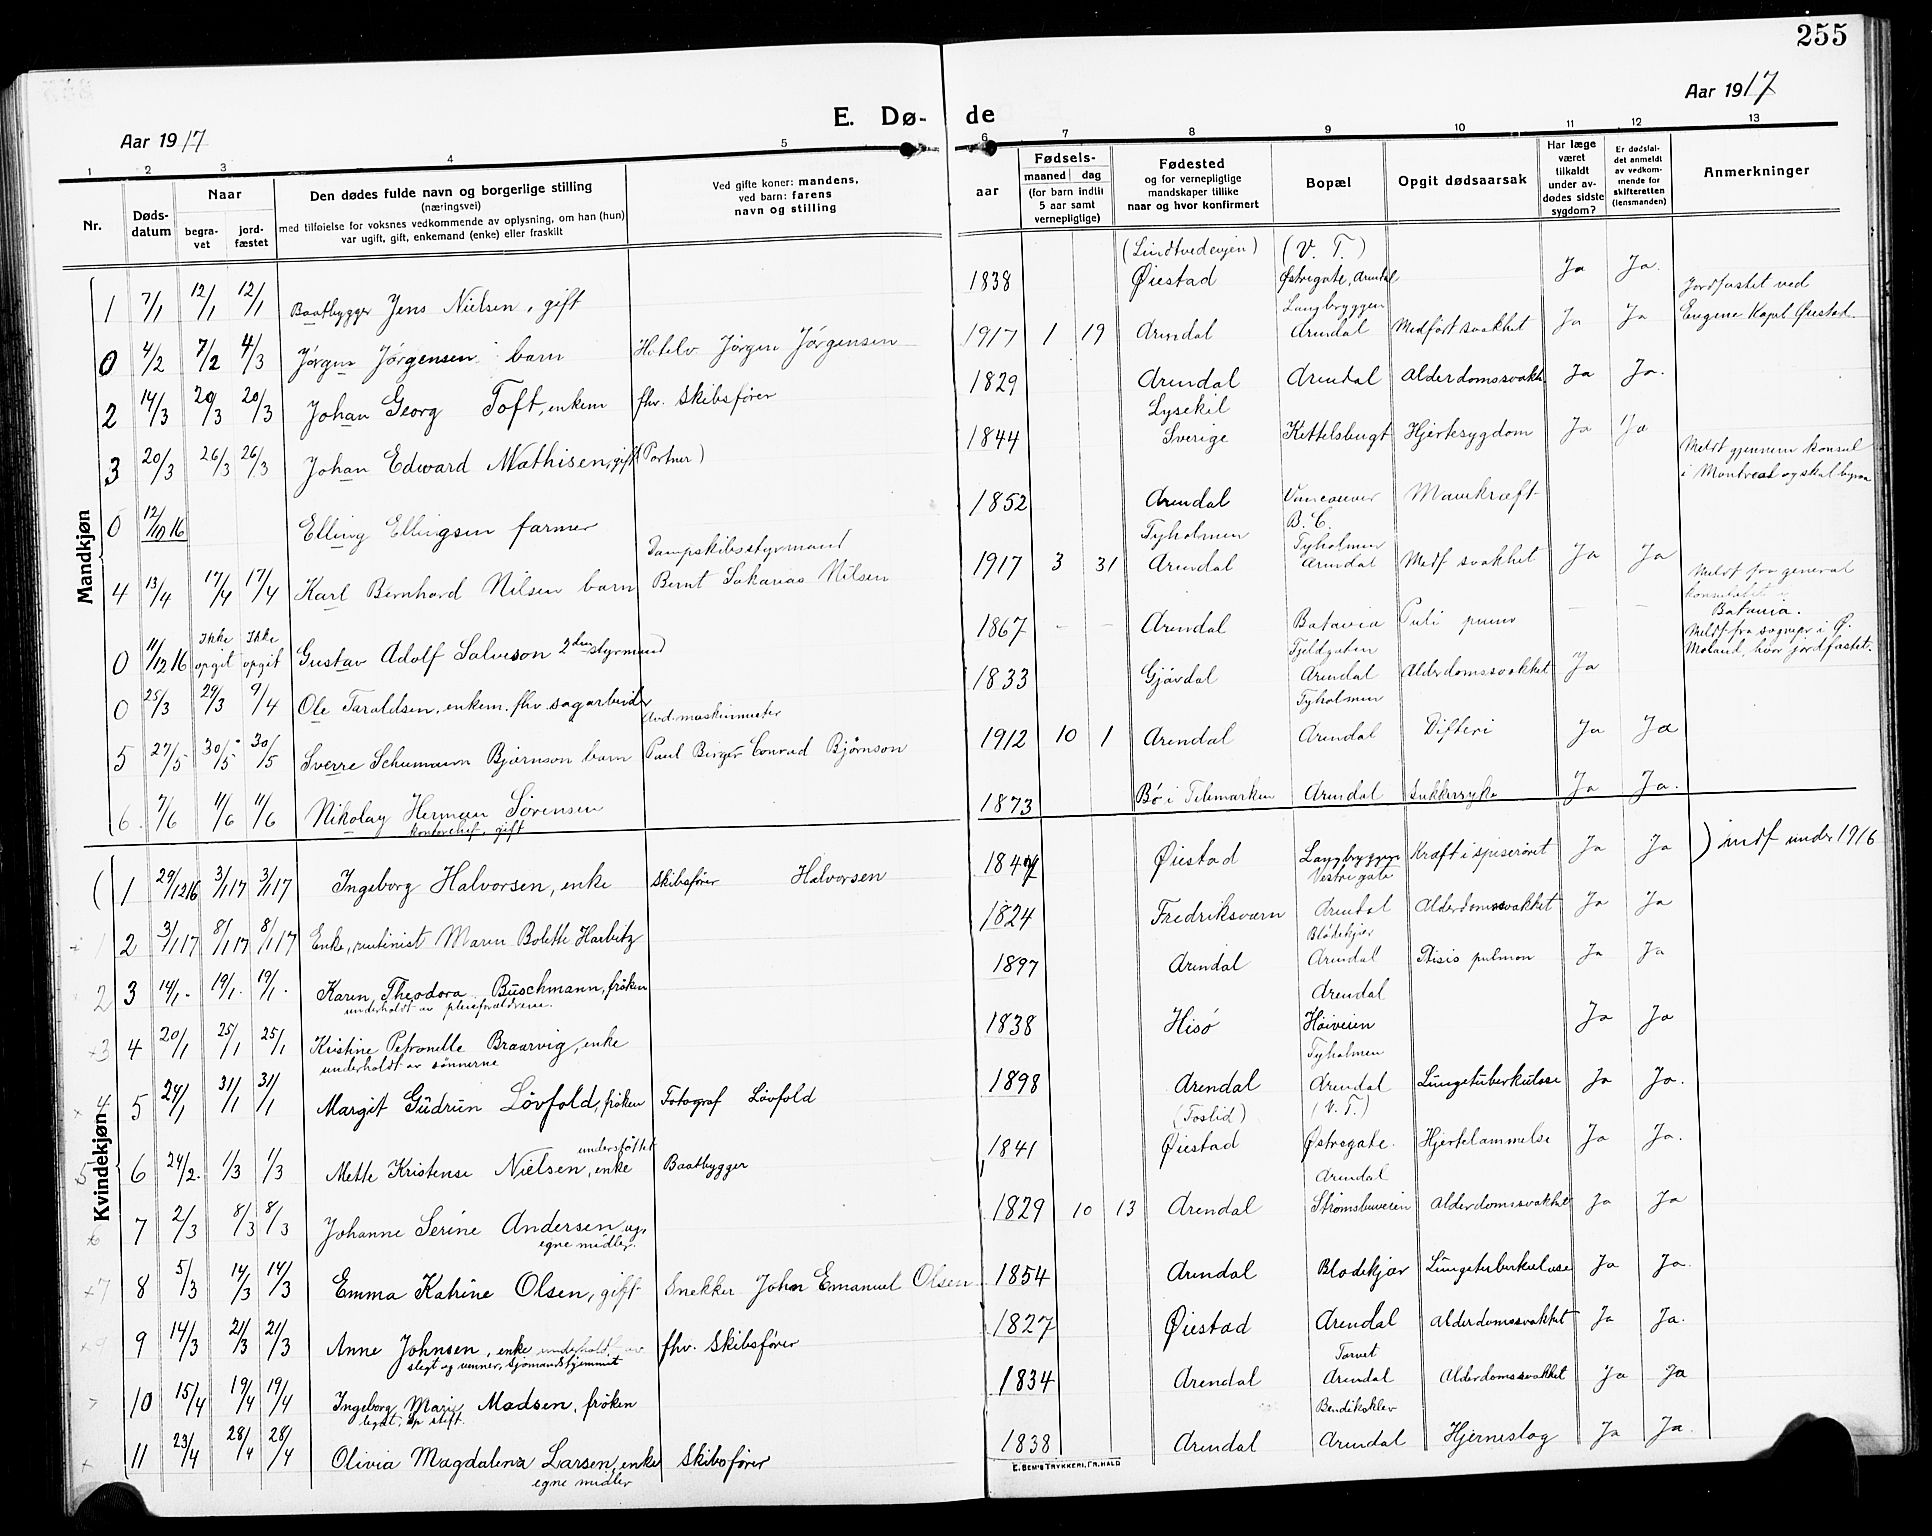 255
Aar 1917
E. Dø- de
Aar 1917
1 2 3 4 5 6 7 8 9 10 11 12 13
Nr.
Døds-
datum
Naar
begra-
vet
jord-
fæstet
Den dødes fulde navn og borgerlige stilling
(næringsvei)
med tilføielse for voksnes vedkommende av oplysning, om han (hun)
var ugift, gift, enkemand (enke) eller fraskilt
Ved gifte koner: mandens,
ved barn: farens
navn og stilling
aar
Fødsels-
maaned dag
(for barn indtil
5 aar samt
vernepligtige)
Fødested
og for vernepligtige
mandskaper tillike
naar og hvor konfirmert
Bopæl
Opgit dødsaarsak
Har læge
været
tilkaldt
under av-
dødes sidste
sygdom?
Er dødsfal-
det anmeldt
av vedkom-
mende for
skifteretten
(lensmanden)
Anmerkninger
Mandkjøn
(Lindtvedevjen) (V. T.)
1 7/1 12/1 12/1 Baatbygger Jens Nielsen, gift 1838 Øiestad Østregate, Arendal Ja Ja. Jordfæstet ved
Langbryggen
0 4/2 7/2 4/3 Jørgen Jørgensen barn Hotelv Jørgen Jørgensen 1917 1 19 Arendal Arendal Medført svakhet Ja Ja Eugene Kapel Øiestad
2 14/3 20/3 20/3 Johan Georg Toft, enkem fhv. Skibsfører 1829 Arendal Arendal Alderdomssvakh. Ja Ja.
Lysekil
3 20/3 26/3 26/3 Johan Edward Mathisen, gift (Portner) 1844 Sverige Kittelsbugt Hjertesygdom Ja Ja
Meldt gjennem konsul
i Montreal og skal
0 12/10 16 Elling Ellingsen farmer 1852 Arendal Vancouver Mavekræft
B. C.
Dampskibsstyrmand Tyholmen Tyholmen
4 13/4 17/4 17/4 Karl Bernhard Nilsen barn Bernt Sakarias Nilsen 1917 3 31 Arendal Arendal Medf svakhet Ja Ja
Meldt fra general
konsulatet i
Batavia.
0 11/12 16 Ikke opgit Ikke opgit Gustav Adolf Salveson 2den styrmand 1867 — — Arendal Batavia — —
Fjeldgaten Meldt fra sognepr i Ø.
0 25/3 29/3 9/4 Ole Taraldsen, enkem. fhv. sagarbeider 1833 Gjøvdal Arendal Alderdomssvakhet Ja Moland, hvor jordfæstet.
maskinmester Tyholmen
5 27/5 30/5 30/5 Sverre Schumann Bjørnson barn Paul Birger Conrad Bjørnson 1912 10 1 Arendal Arendal Difteri Ja Ja
6. 7/6 11/6 11/6 Nikolay Herman Sørensen 1873 Bø i Telemarken Arendal Sukkersyke Ja Ja.
kontorchef, gift
Kvindekjøn
1 29/12 16 3/1 17 3/1 17 Ingeborg Halvorsen, enke Skibsfører Halvorsen 1847 Øiestad Langbryggen Kræft i spiserøret Ja Ja ) indf under 1916
Vestregate
2 3/1 17 8/1 17 8/1 17 Enke, rentinist Maren Bolette Harbitz 1824 Fredriksværn Arendal Alderdomssvakhet Ja Ja
Blødekjær
3 14/1 - 19/1 - 19/1 - Karen Theodora Buschmann, frøken 1897 Arendal Arendal Ptisis pulmon Ja Ja
underholdt av pleieforældrene.
Arendal
4 20/1 25/1 25/1 Kristine Petronelle Braarvig, enke 1838 Hisø Høiveien Ja Ja
underholdt av sønnerne
Tyholmen
5 24/1 31/1 31/1 Margit Gudrun Løvfold, frøken Fotograf Løvfold 1898 Arendal Arendal Lungetuberkulose Ja Ja.
understøttet (Fostid) (V. T.)
6 24/2. 1/3 1/3 Mette Kristense Nielsen, enke Baatbygger 1841 Øiestad Østregate. Hjertelammelse Ja Ja.
Arendal
7 2/3 8/3 8/3 Johanne Serine Andersen ug. 1829 10 13 Arendal Strømsbuveien Alderdomssvakhet Ja Ja
egne midler.
8 5/3 14/3 14/3 Emma Katrine Olsen, gift Snekker John Emanuel Olsen 1854 Arendal Blødekjær Lungetuberkulose Ja Ja.
9 14/3 21/3 21/3 Anne Johnsen, enke underholdt av fhv. Skibsfører 1827 Øiestad Arendal Alderdomssvakhet Ja Ja.
slegt og venner, Sjømandshjemmet
Torvet
10 15/4 19/4 19/4 Ingeborg Marie Madsen, frøken 1834 Arendal Arendal Alderdomssvakhet Ja Ja
legat, Sp stift.
Bendiksklev
11 23/4 28/4 28/4 Olivia Magdalena Larsen, enke Skibsfører 1838 Arendal Arendal Hjerneslag Ja Ja.
egne midler
E. SEM'S TRYKKERI, FR.HALD